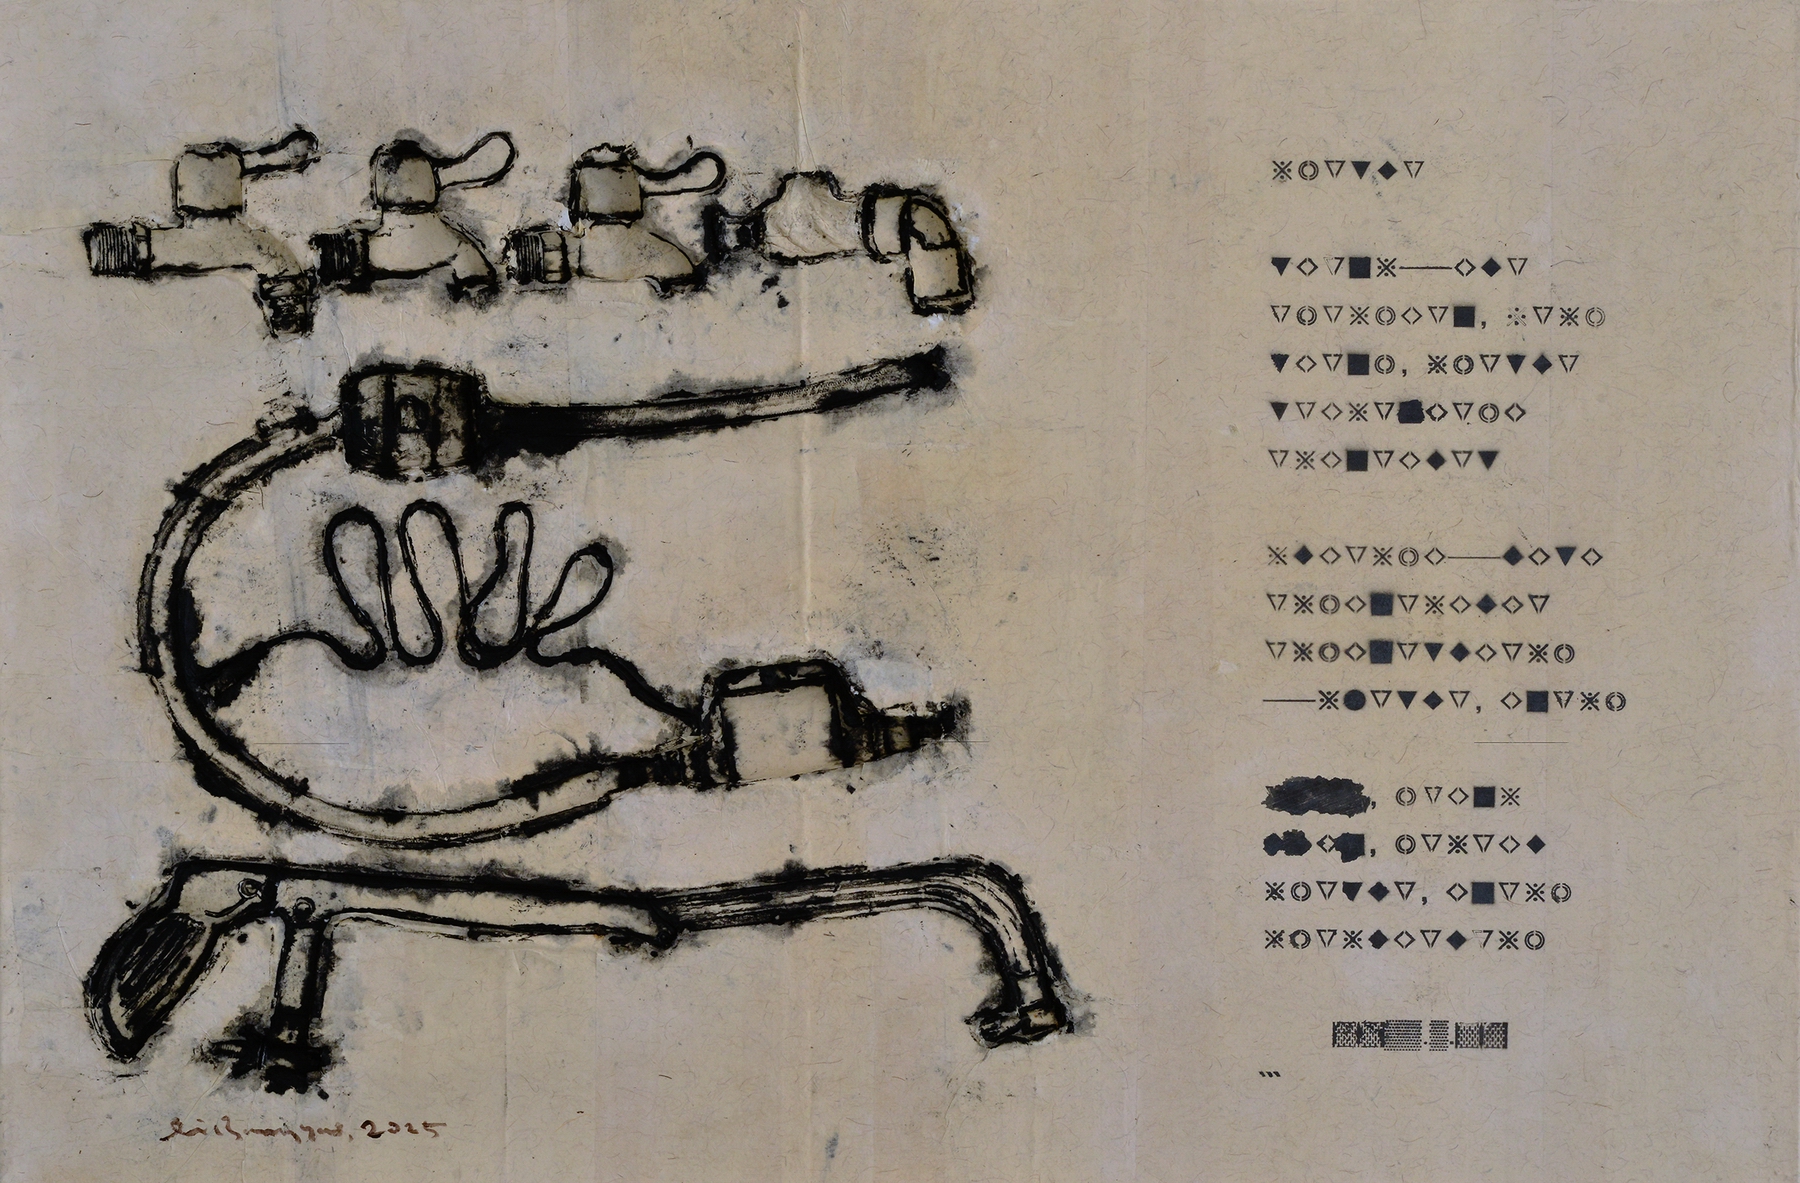 ※◎▽▼◆▽
▼◇▽■※——◇◆▽
▽◎▽※◎◇▽■, ※▽※◎
▼◇▽■◎, ※◎▽▼◆▽
▼▽◇※▽■◇▽◎◇
▽※◇■▽◇◆▽▼
※◆◇▽※◎◇——◆◇▼◇
▽※◎◇■▽※◇◆◇▽
▽※◎◇■▽▼◆◇▽※◎
——※●▽▼◆▽, ◇■▽※◎
, ◎▽◇■※
, ◎▽※▽◇◆
※◎▽▼◆▽, ◇■▽※◎
※◎▽※◆◇▽◆▽※◎
2025